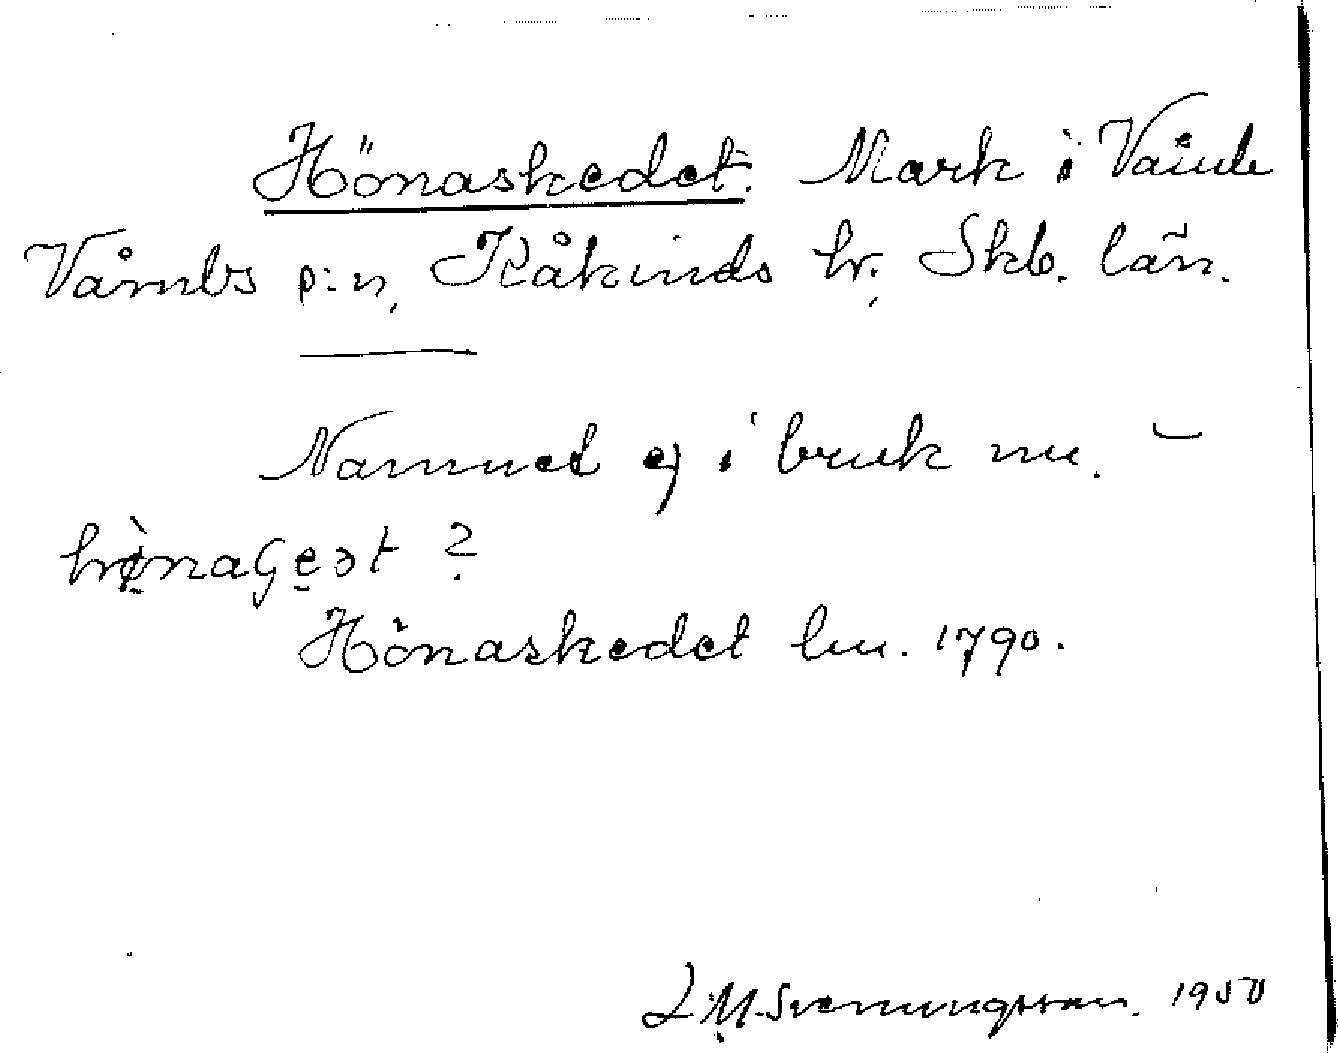 Hönaskedet. Mark i
Våmbs p:n, Kåkinds hr. Skb. län.
Namnet ej i bruk nu. –
?
Hönaskedet lm. 1790.
L. M. Svenungsson. 1950